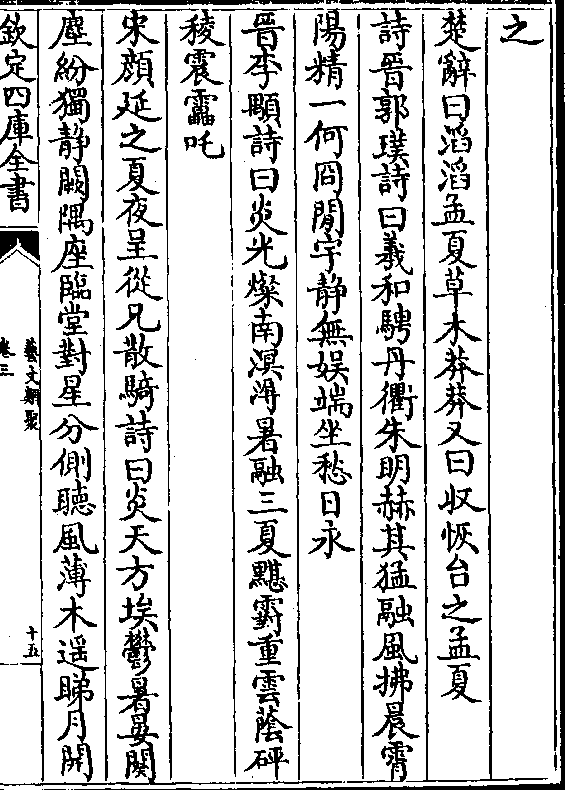 之
楚辭曰滔滔孟夏草木莽莽又曰收恢台之孟夏
詩晉郭璞詩曰羲和騁丹衢朱明赫其猛融風拂晨霄
陽精一何冏閒宇静無娱端坐愁日永
晉李顒詩曰炎光燦南溟溽暑融三夏黮霨重雲蔭砰
稜震靁吒
宋顔延之夏夜呈從兄散騎詩曰炎天方埃鬱暑晏闋
塵紛獨静闕隅座臨堂對星分側聽風薄木遥睇月開
欽定四庫全書
藝文類聚
卷三
十五